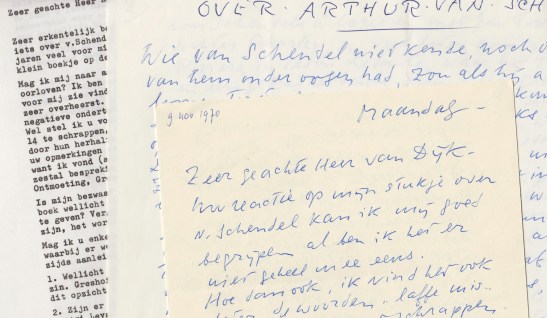 Zeer geachte Heer
Zeer erkentelijk be
iets over v.Schend
jaren veel voor mi
klein boekje op de
Mag ik mij naar a
oorloven? Ik ben
voor mij zie vind
zeer overheerst.
negatieve ondert
Wel stel ik u vo
14 te schrappen,
door hun herhal
uw opmerkingen
want ik vond (a
zestal besprek
Ontmoeting, Gr
Is mijn bezwa
boek wellicht
te geven? Ver
zijn, het wor
Mag ik u enke
waarbij er we
zijds aanlei
1. Wellicht
zin. Gresho
dit opzicht
2. Zijn er
OVER ARTHUR VAN SCH
Wie van Schendel niet kende, noch
van hem onder oogen had, zou als hij a
9 nov 1970
Maandag -
Zeer geachte Heer van Dijk -
Uw reactie op mijn stukje over
v. Schendel kan ik mij goed
begrijpen al ben ik het er
niet geheel mee eens.
Hoe dan ook, ik vind het ook
beter de woorden "laffe mis-
schrappen.